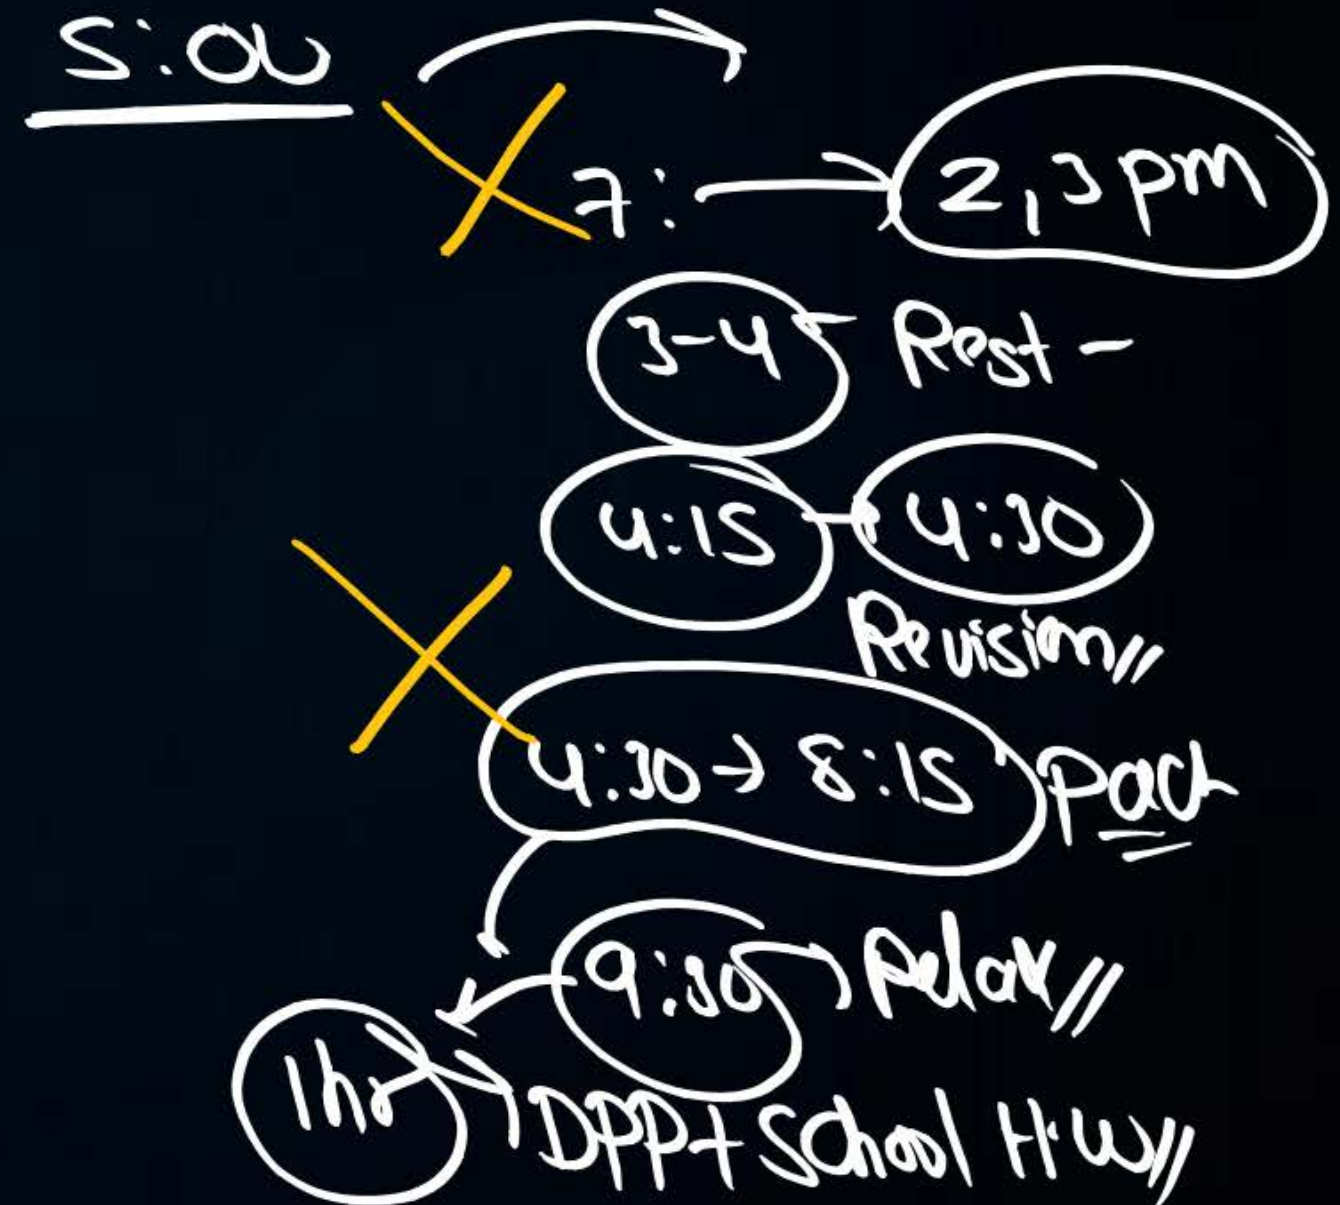 5:00
7: → 2,3 pm
3-4 Rest -
4:15 → 4:30
Revision//
4:30 → 8:15
9:30 Relax//
1hr DPP + School H.W//